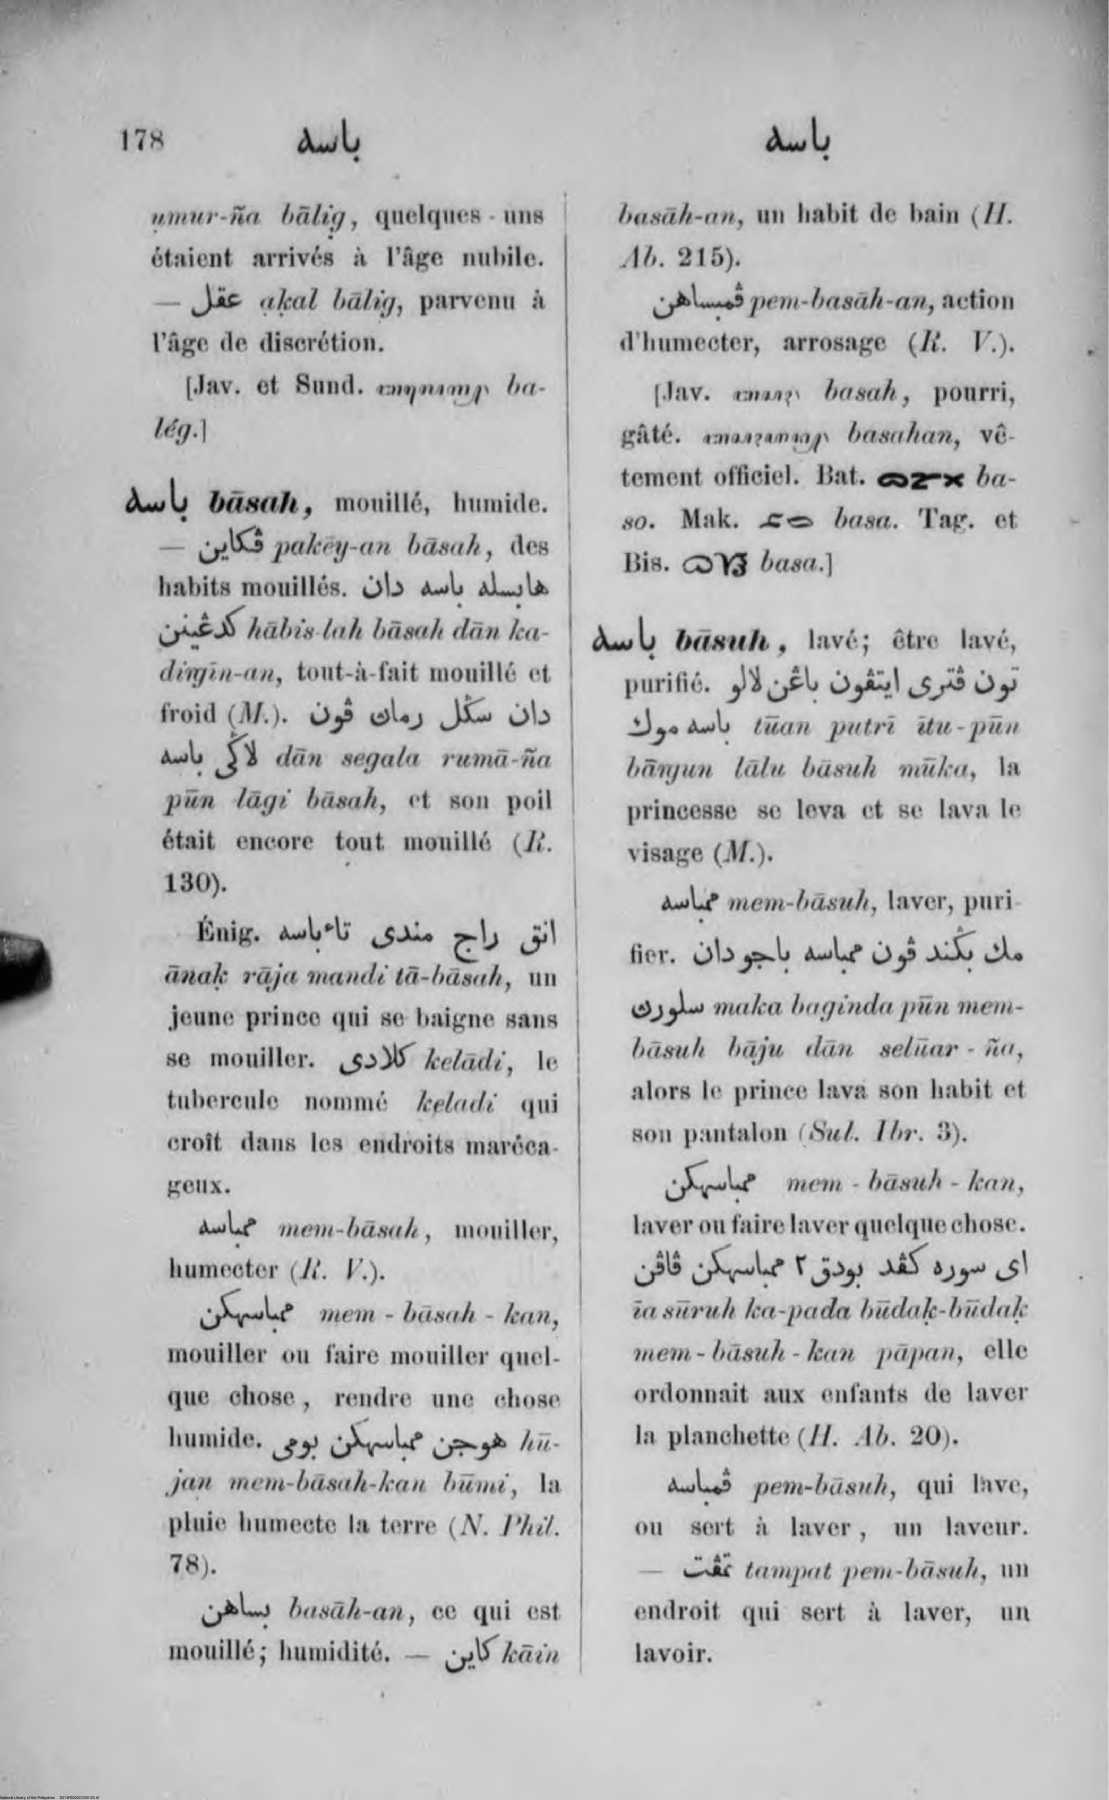 178 باسه باسه
umur-ña bālig, quelques-uns
étaient arrivés à l'âge nubile.
— عقل aḳal bālig, parvenu à
l'âge de discrétion.
[Jav. et Sund. ba-
lég.]
باسه bāsah, mouillé, humide.
— ڤكاين pakēy-an bāsah, des
habits mouillés. هابسله باسه دان
كدڠينن hābis-lah bāsah dān ka-
dingīn-an, tout-à-fait mouillé et
froid (M.). دان سݢل رمان ڤون
لاݢي باسه dān segala rumā-ña
pūn lāgi bāsah, et son poil
était encore tout mouillé (R.
130).
Énig. انق راج مندى تاءباسه
ānaḳ rāja mandi tā-bāsah, un
jeune prince qui se baigne sans
se mouiller. كلادى kelādi, le
tubercule nommé keladi qui
croît dans les endroits maréca-
geux.
ممباسه mem-bāsah, mouiller,
humecter (R. V.).
ممباسهكن mem-bāsah-kan,
mouiller ou faire mouiller quel-
que chose, rendre une chose
humide. هوجن ممباسهكن بومى hū-
jan mem-bāsah-kan būmi, la
pluie humecte la terre (N. Phil.
78).
بساهن basāh-an, ce qui est
mouillé; humidité. — كاين kāin
basāh-an, un habit de bain (H.
Ab. 215).
ڤمبساهن pem-basāh-an, action
d'humecter, arrosage (R. V.).
[Jav. basah, pourri,
gâté. basahan, vê-
tement officiel. Bat. ba-
so. Mak. basa. Tag. et
Bis. basa.]
باسه bāsuh, lavé; être lavé,
purifié. تون ڤترى ايتڤون باڠن لالو
باسه موك tūan putrī ītu-pūn
bāngun lālu bāsuh mūka, la
princesse se leva et se lava le
visage (M.).
ممباسه mem-bāsuh, laver, puri-
fier. مك بݢند ڤون ممباسه باجو دان
سلورڽ maka baginda pūn mem-
bāsuh bāju dān selūar-ña,
alors le prince lava son habit et
son pantalon (Sul. Ibr. 3).
ممباسهكن mem-bāsuh-kan,
laver ou faire laver quelque chose.
اى سوره كڤد بودق٢ ممباسهكن ڤاڤن
īa sūruh ka-pada būdaḳ-būdaḳ
mem-bāsuh-kan pāpan, elle
ordonnait aux enfants de laver
la planchette (H. Ab. 20).
ڤمباسه pem-bāsuh, qui lave,
ou sert à laver, un laveur.
— تمڤت tampat pem-bāsuh, un
endroit qui sert à laver, un
lavoir.